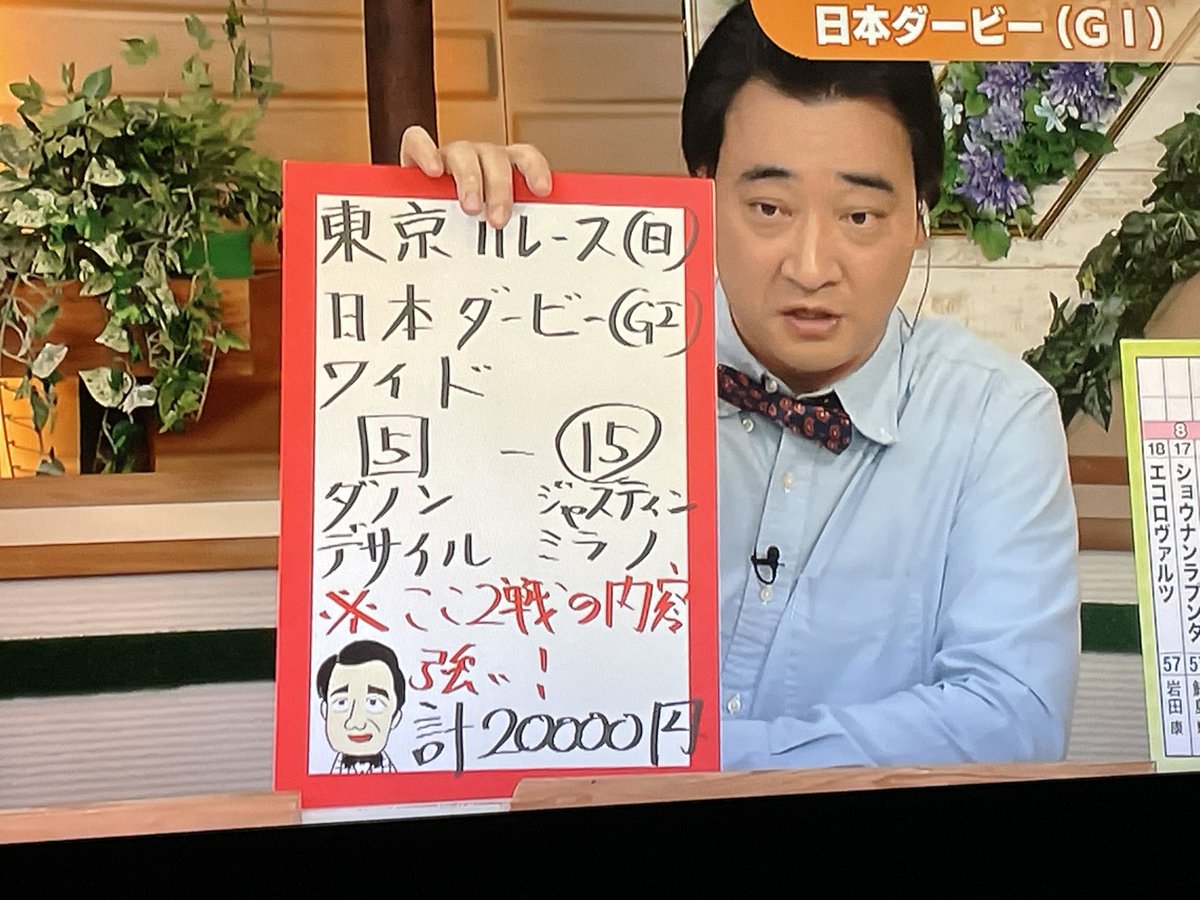 日本ダービー(GⅠ)
東京11レース(日)
日本ダービー(GI)
ワイド
5 - 15
ダノン ジャスティン
デサイル ミラノ
※ここ2戦の内容
強い!
計20000円
8
18 17
エコロヴァルツ
ショウナンラプンタ
57
岩田康